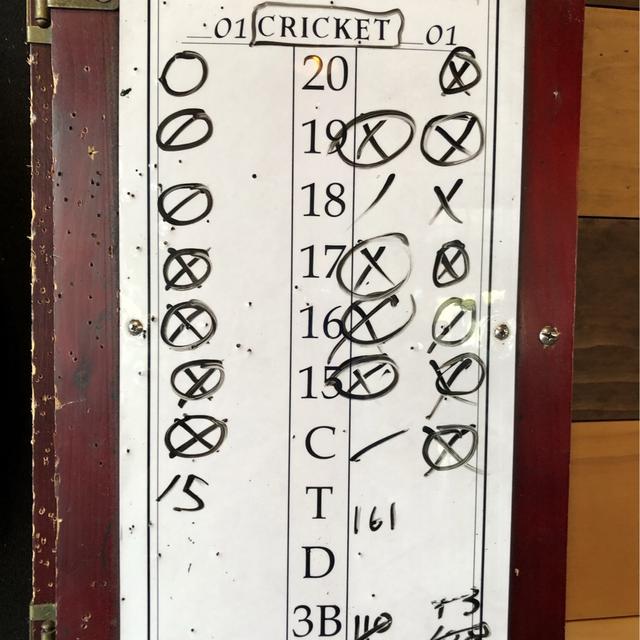 01 CRICKET 01
20
19
18
17
16
15
C
15 T 161
D
3B 110